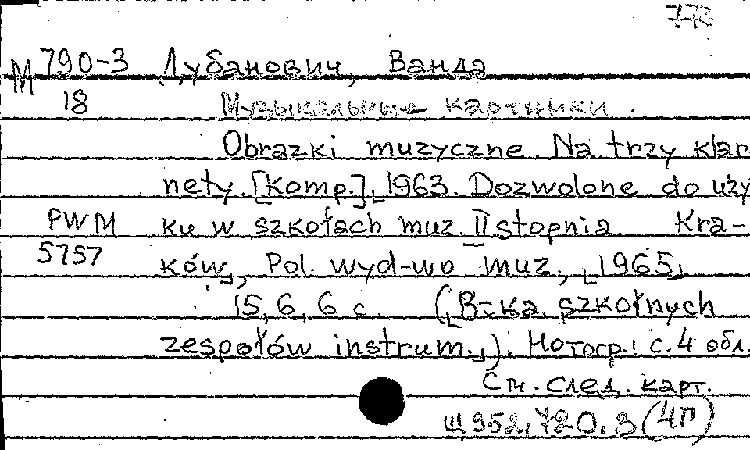 773
М 790-3 Дубанович, Ванда
18 Музыкальные картинки.
Obrazki muzyczne. Na trzy klar
nety. [Komp.], 1963. Dozwolone do uży
PWM ku w szkołach muz. II stopnia Kra-
5757 ków, Pol. wyd-wo muz., [1965]
15, 6, 6 с. ([B-ka szkołnych
zespołów instrum.]). Нотогр.: с. 4 обл.
См. след. карт.
Щ952.720.3(4П)